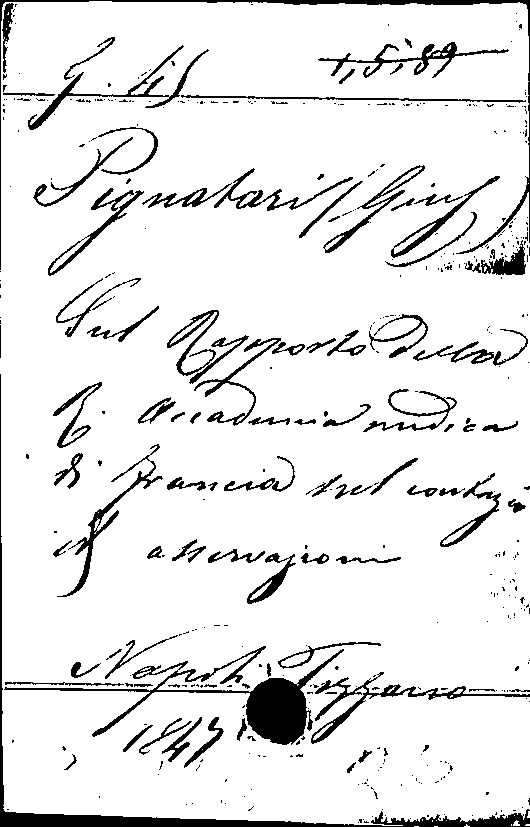 1,5,89
Pignatari (Gius)
Sul Rapporto della
R. Accademia medica
di Francia sul contagio
osservazioni
Napoli Tizzano
1847